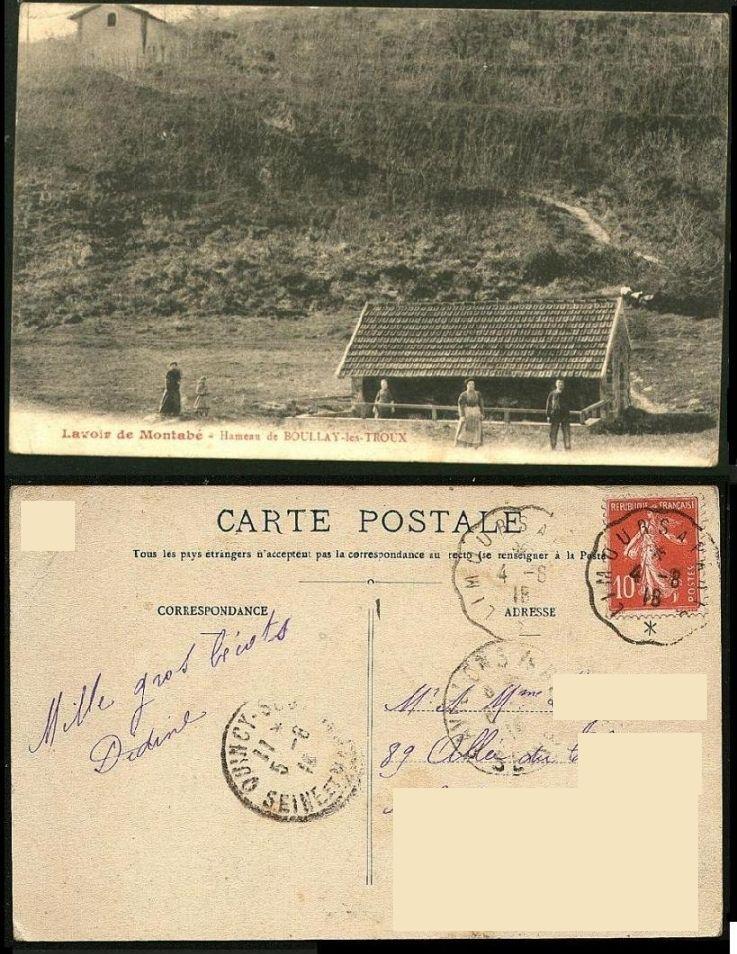 Lavoir de Montabé - Hameau de BOULLAY-les-TROUX
CARTE POSTALE
Tous les pays étrangers n'acceptent pas la correspondance au recto (se renseigner à la Poste
CORRESPONDANCE
ADRESSE
REPUBLIQUE FRANÇAISE
10
POSTES
LIMOURS A
4 -8
18
LIMOURS A
4 -8
18
Mille gros
Didine
QUINCY
11 *
5 -8
SEINE ET
Mr & Mme
89 Allée du